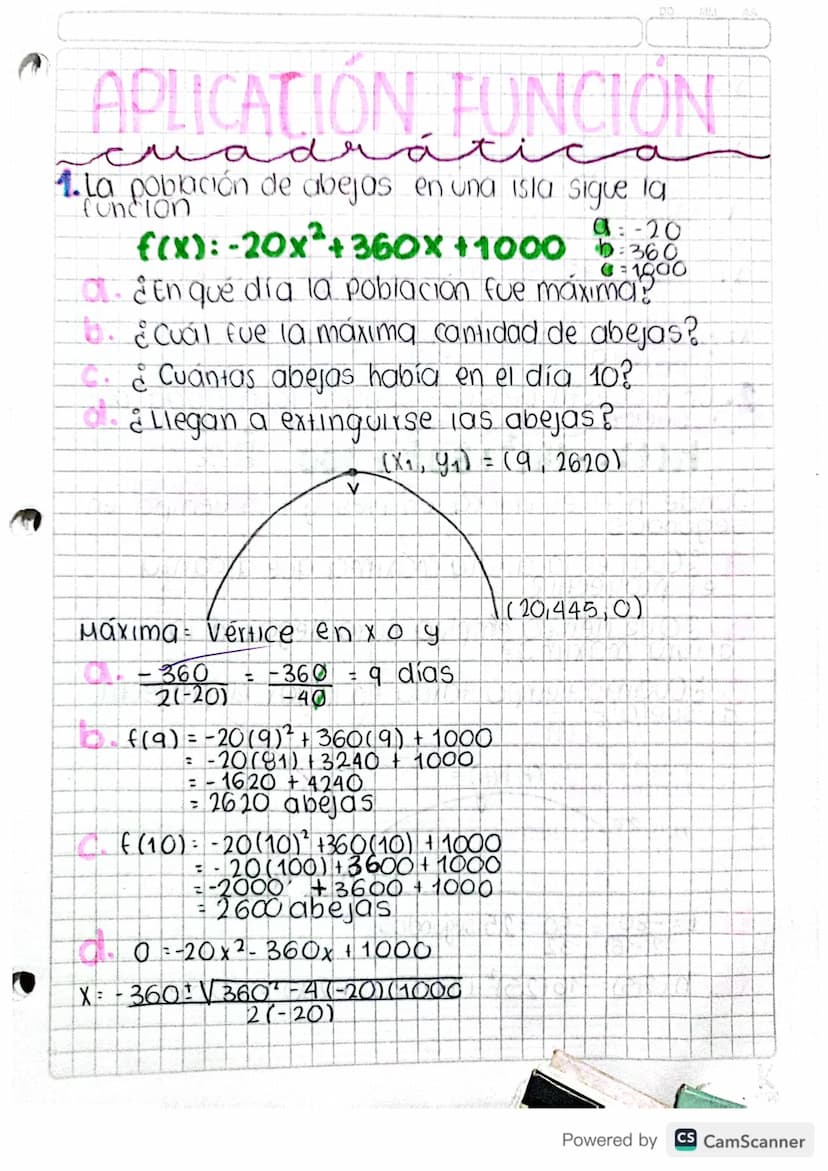 DD MM AA
APLICACIÓN FUNCIÓN
cuadrática
1. La población de abejas en una isla sigue la
función
f(x): -20x²+360x+1000
a: -20
b: 360
c = 1000
a. ¿En qué día la población fue máxima?
b. ¿Cuál fue la máxima cantidad de abejas?
c. ¿Cuántas abejas había en el día 10?
d. ¿Llegan a extinguirse las abejas?
(x₁, y₁) = (9, 2620)
V
(20,445, 0)
Máxima= Vértice en x o y
a. -360/2(-20) = -360/-40 = 9 días
b. f(9) = -20(9)² + 360(9) + 1000
= -20(81) + 3240 + 1000
= -1620 + 4240
= 2620 abejas
c. f(10): -20(10)² +360(10) + 1000
= -20(100)+3600+1000
= -2000 + 3600 + 1000
= 2600 abejas
d. 0 = -20x² - 360x + 1000
X = -360 ± √360² - 4(-20)(1000
2(-20)
Powered by CS CamScanner